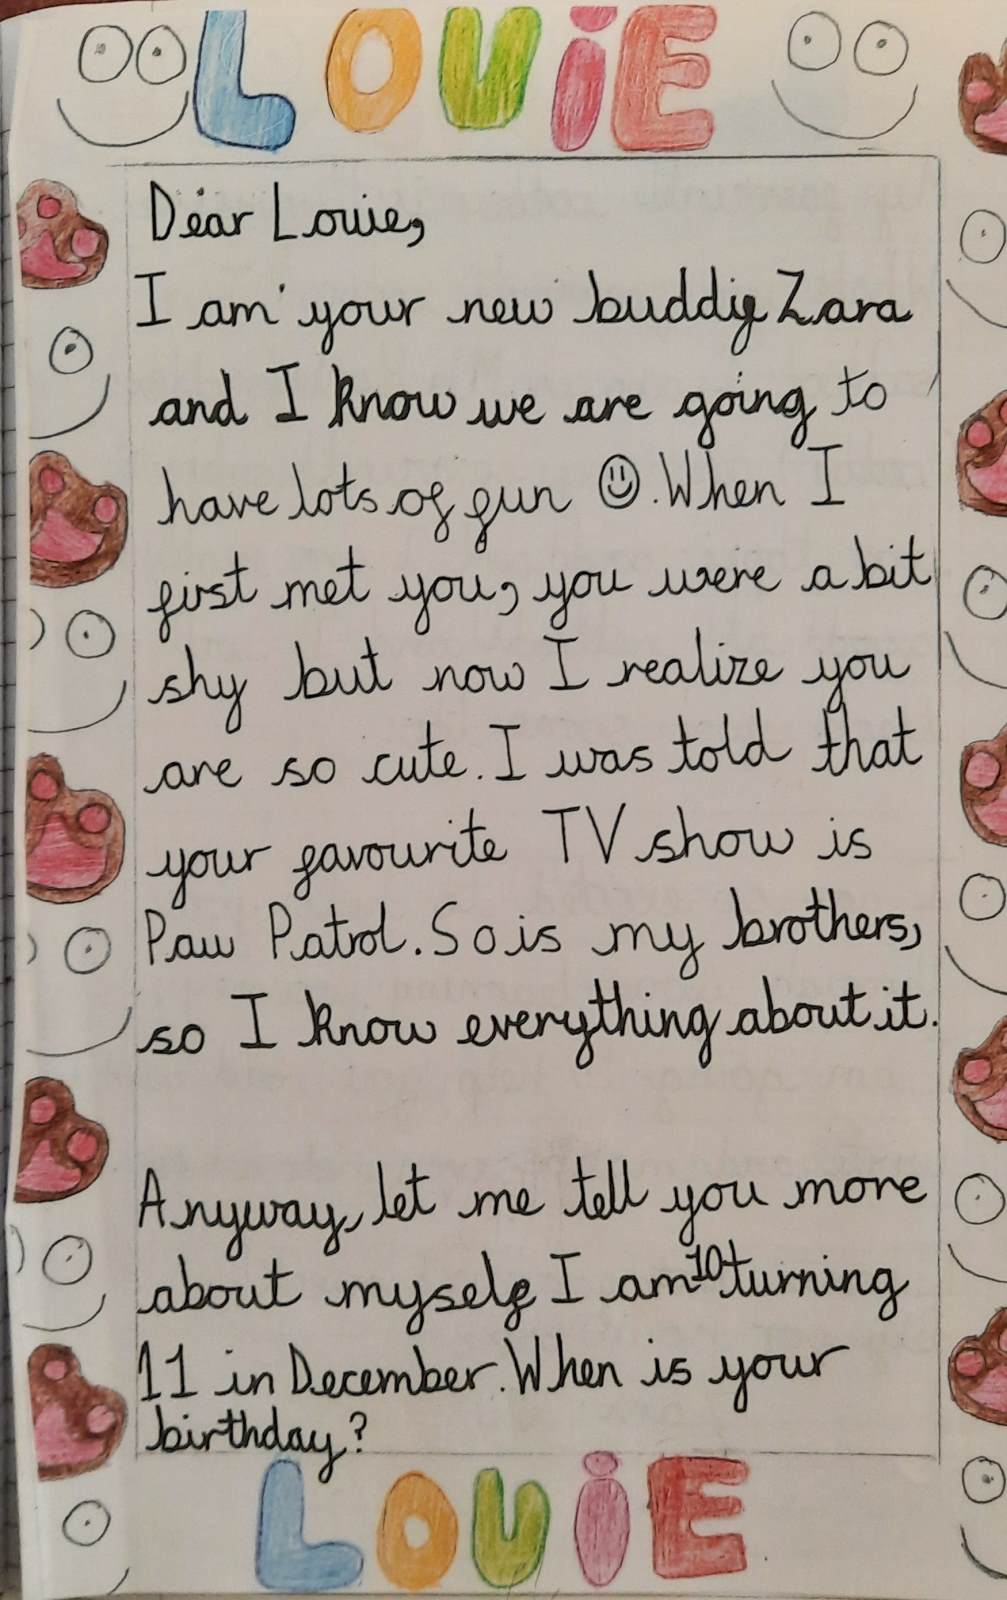 LOUiE
Dear Louie,
I am your new buddy Zara
and I know we are going to
have lots of fun ☺. When I
first met you, you were a bit
shy but now I realize you
are so cute. I was told that
your favourite TV show is
Paw Patrol. So is my brothers,
so I know everything about it.
Anyway, let me tell you more
about myself I am 10 turning
11 in December. When is your
birthday?
LOUiE